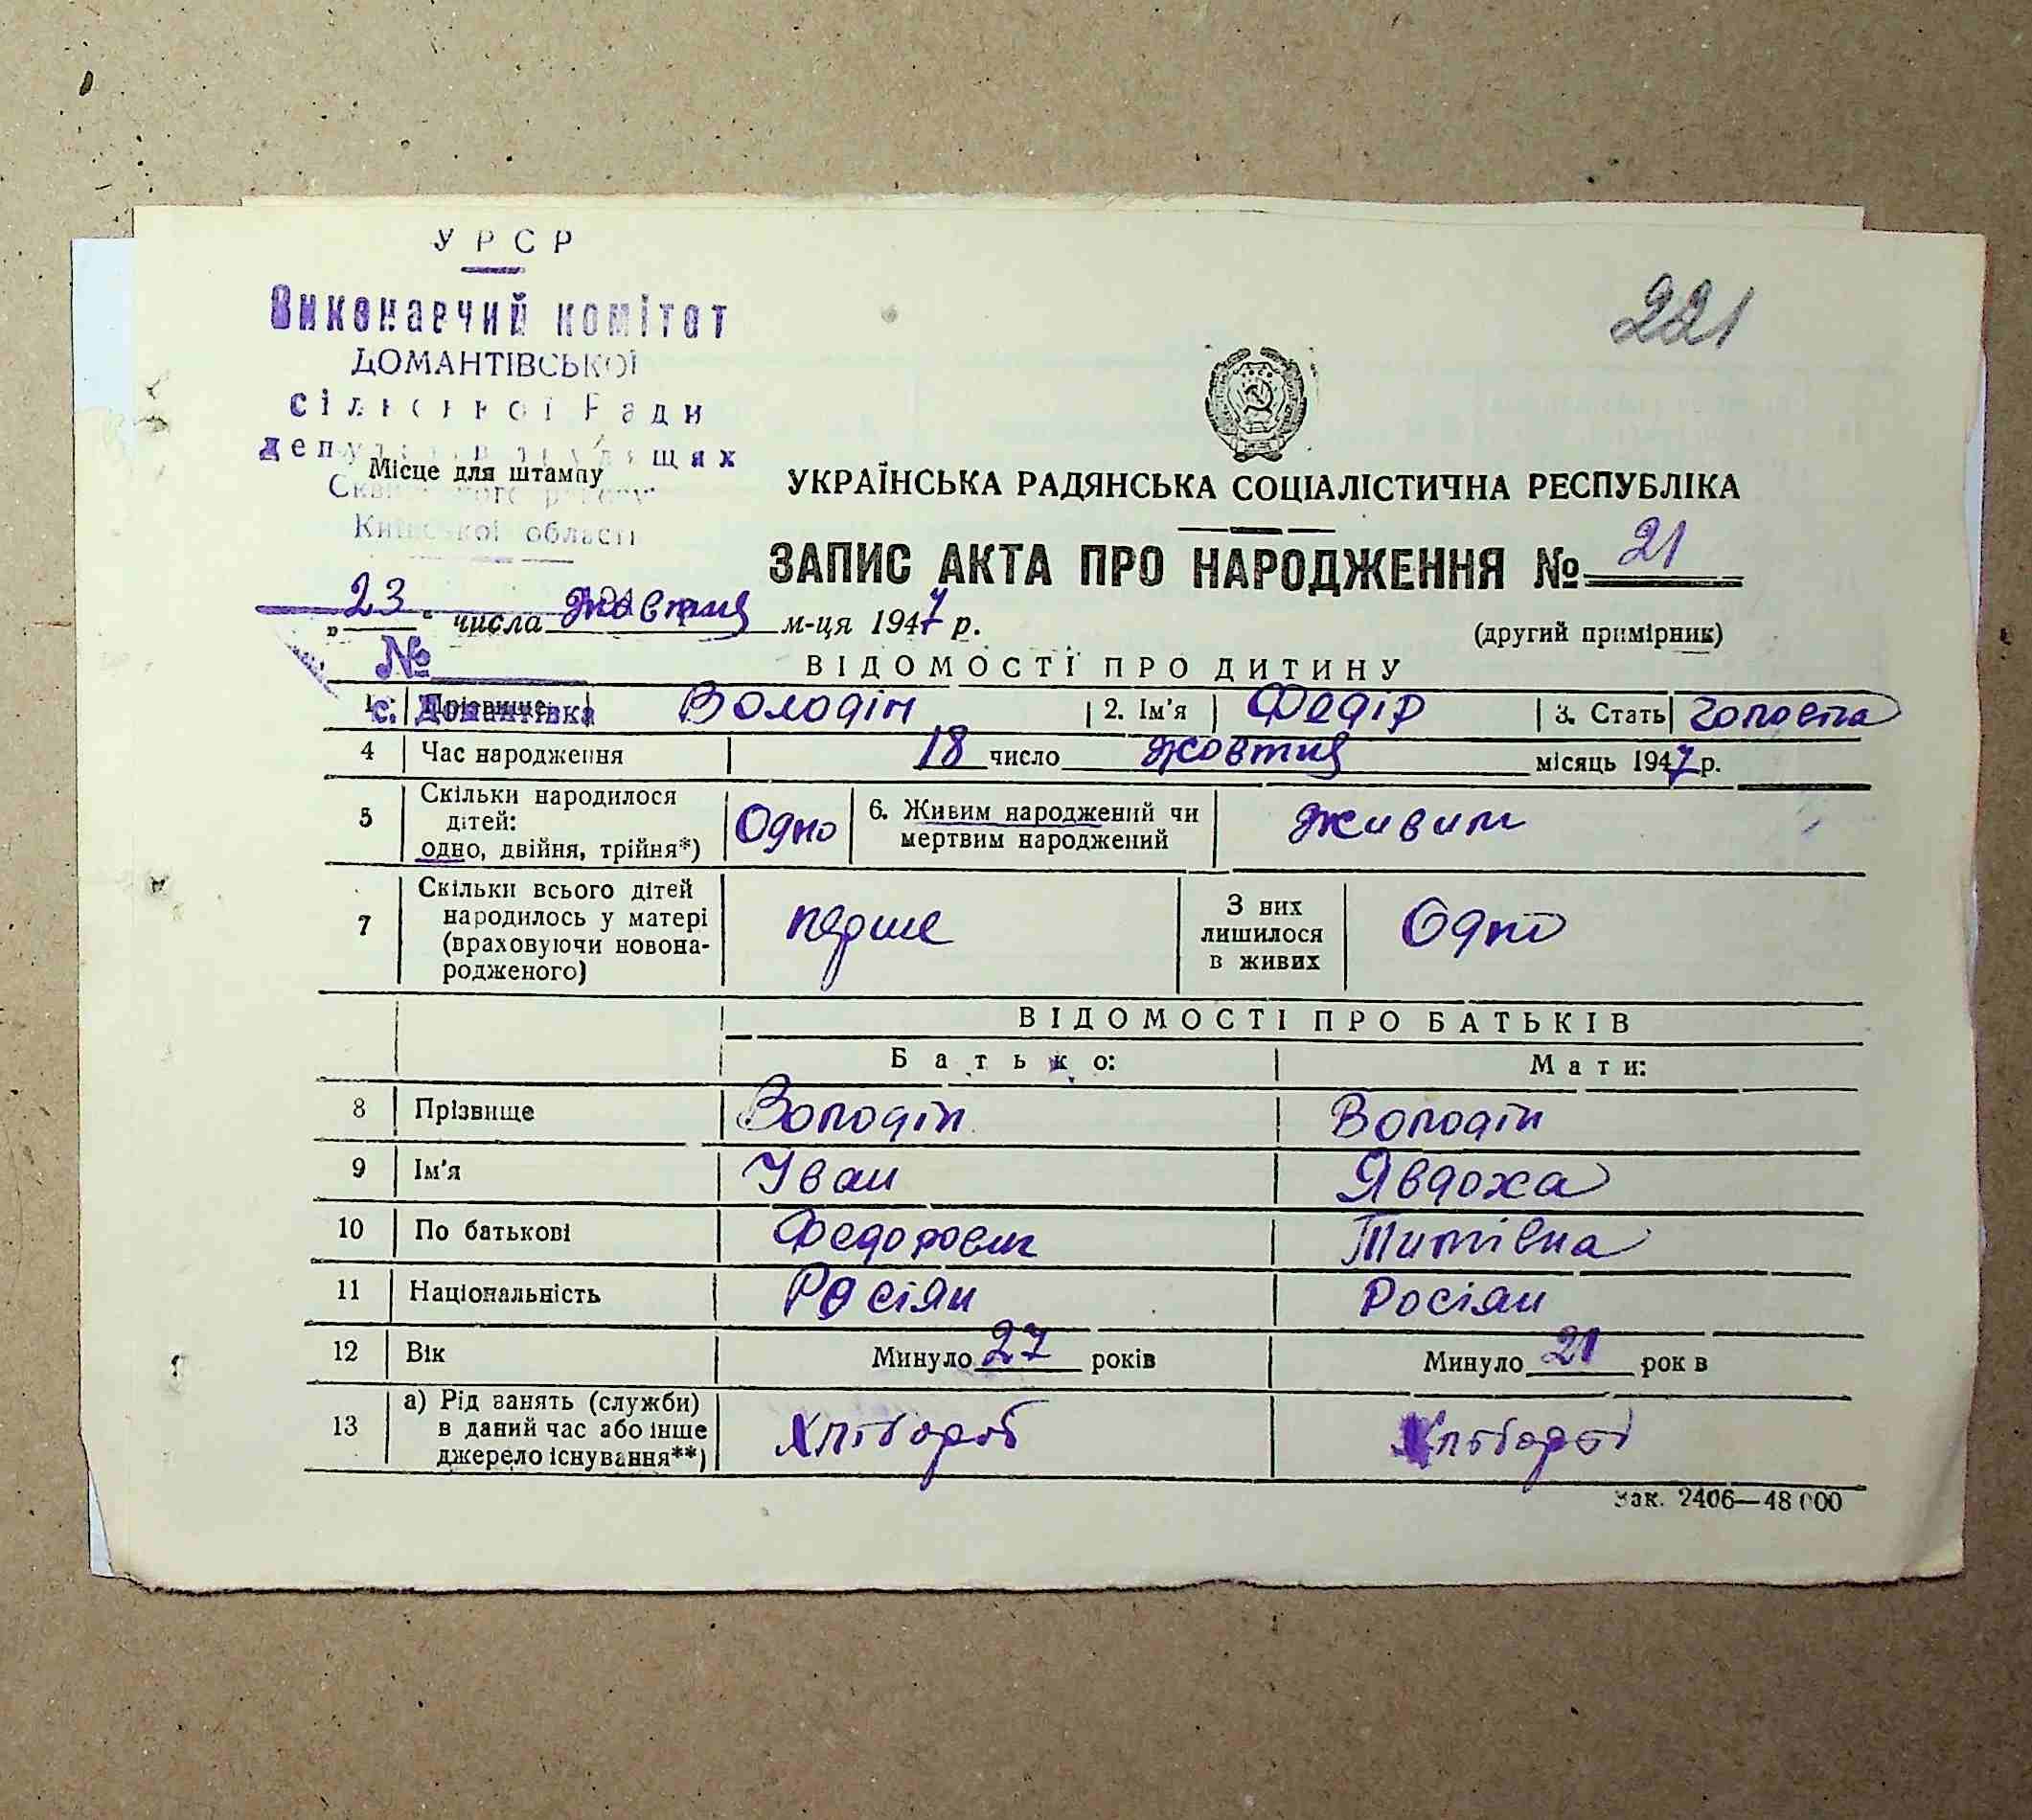 УРСР
Виконавчий комітет
ДОМАНТІВСЬКОЇ
сільської Ради
депутатів трудящих
Місце для штампу
Сквирського району
Київської області
221
УКРАЇНСЬКА РАДЯНСЬКА СОЦІАЛІСТИЧНА РЕСПУБЛІКА
ЗАПИС АКТА ПРО НАРОДЖЕННЯ № 21
„ 23 “ числа жовтня м-ця 1947 р.
(другий примірник)
№
ВІДОМОСТІ ПРО ДИТИНУ
с. Домантівка
1. Прізвище Володін 2. Ім'я Федір 3. Стать чоловіча
4 Час народження 18 число жовтня місяць 1947 р.
5 Скільки народилося дітей: одно, двійня, трійня*) Одно 6. Живим народжений чи мертвим народжений живим
7 Скільки всього дітей народилось у матері (враховуючи новона-родженого) перше З них лишилося в живих Одно
ВІДОМОСТІ ПРО БАТЬКІВ
Батько: Мати:
8 Прізвище Володін Володін
9 Ім'я Іван Явдоха
10 По батькові Федорович Титівна
11 Національність Росіян Росіян
12 Вік Минуло 27 років Минуло 21 рок в
13 а) Рід занять (служби) в даний час або інше джерело існування**) Хлібороб Хлібороб
Зак. 2406—48 000